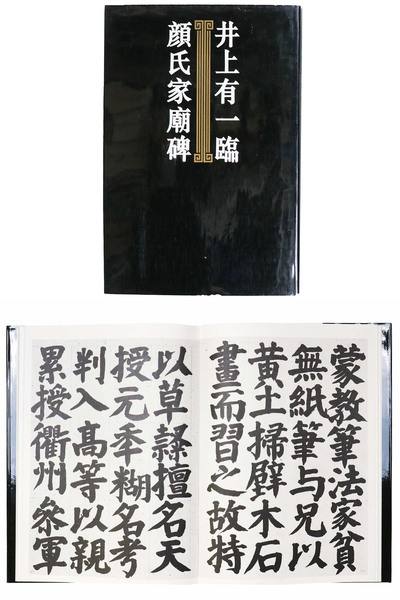 井上有一臨
顔氏家廟碑
蒙教筆法家貧
無紙筆与兄以
黄土掃壁木石
畫而習之故特
以草隷擅名天
授元秊糊名考
判入高等以親
累授衢州叅軍